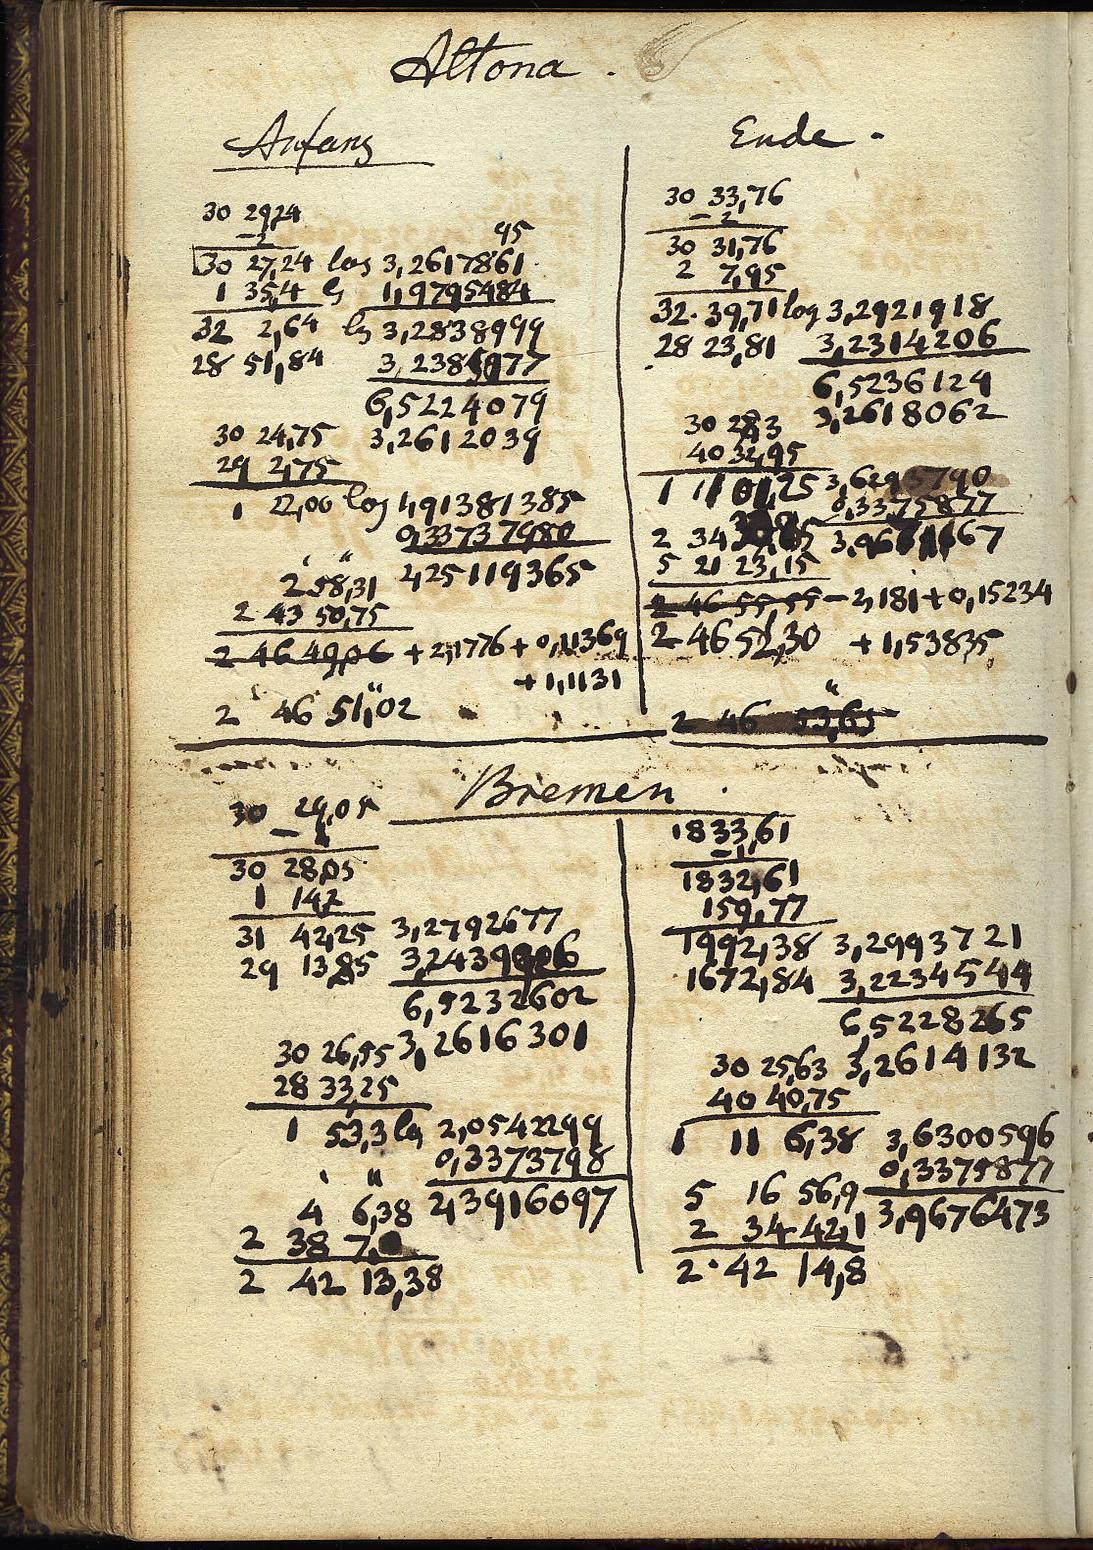 Altona.
Anfang
30 29,24
-2
95
30 27,24 log 3,2617861
1 35,4 lg 1,9795484
32 2,64 lg 3,2838999
28 51,84 3,238
6,5224079
30 24,75 3,2612039
29 2,75
1 22,00 log 1,91381385
0,33737980
2 58,31 2,25119365
2 43 50,75
2 46 49,06 + 2,1776 + 0,11369
+ 1,1131
2 46 51,02
Ende.
30 33,76
-2
30 31,76
2 7,95
32. 39,71 log 3,2921918
28 23,81 3,2314206
6,5236124
3,2618062
30 28,3
40 32,95
1 11 01,25 3,629
0,3375877
2 34
5 21 23,15
2 46 55,55 - 2,181 + 0,15234
2 46 52,30 + 1,53835
2 46 53,65
Bremen.
30 29,05
-1
30 28,05
1 14,2
31 42,25 3,2792677
29 13,85 3,2439
6,5232602
30 26,55 3,2616301
28 33,25
1 53,3 lg 2,0542299
0,3373798
4 6,38 2,3916097
2 38 7,
2 42 13,38
1833,61
-1
1832,61
159,77
1992,38 3,2993721
1672,84 3,2234544
6,5228265
30 25,63 3,2614132
40 40,75
1 11 6,38 3,6300596
0,3375877
5 16 56,9 3,9676473
2 34 42,1
2. 42 14,8